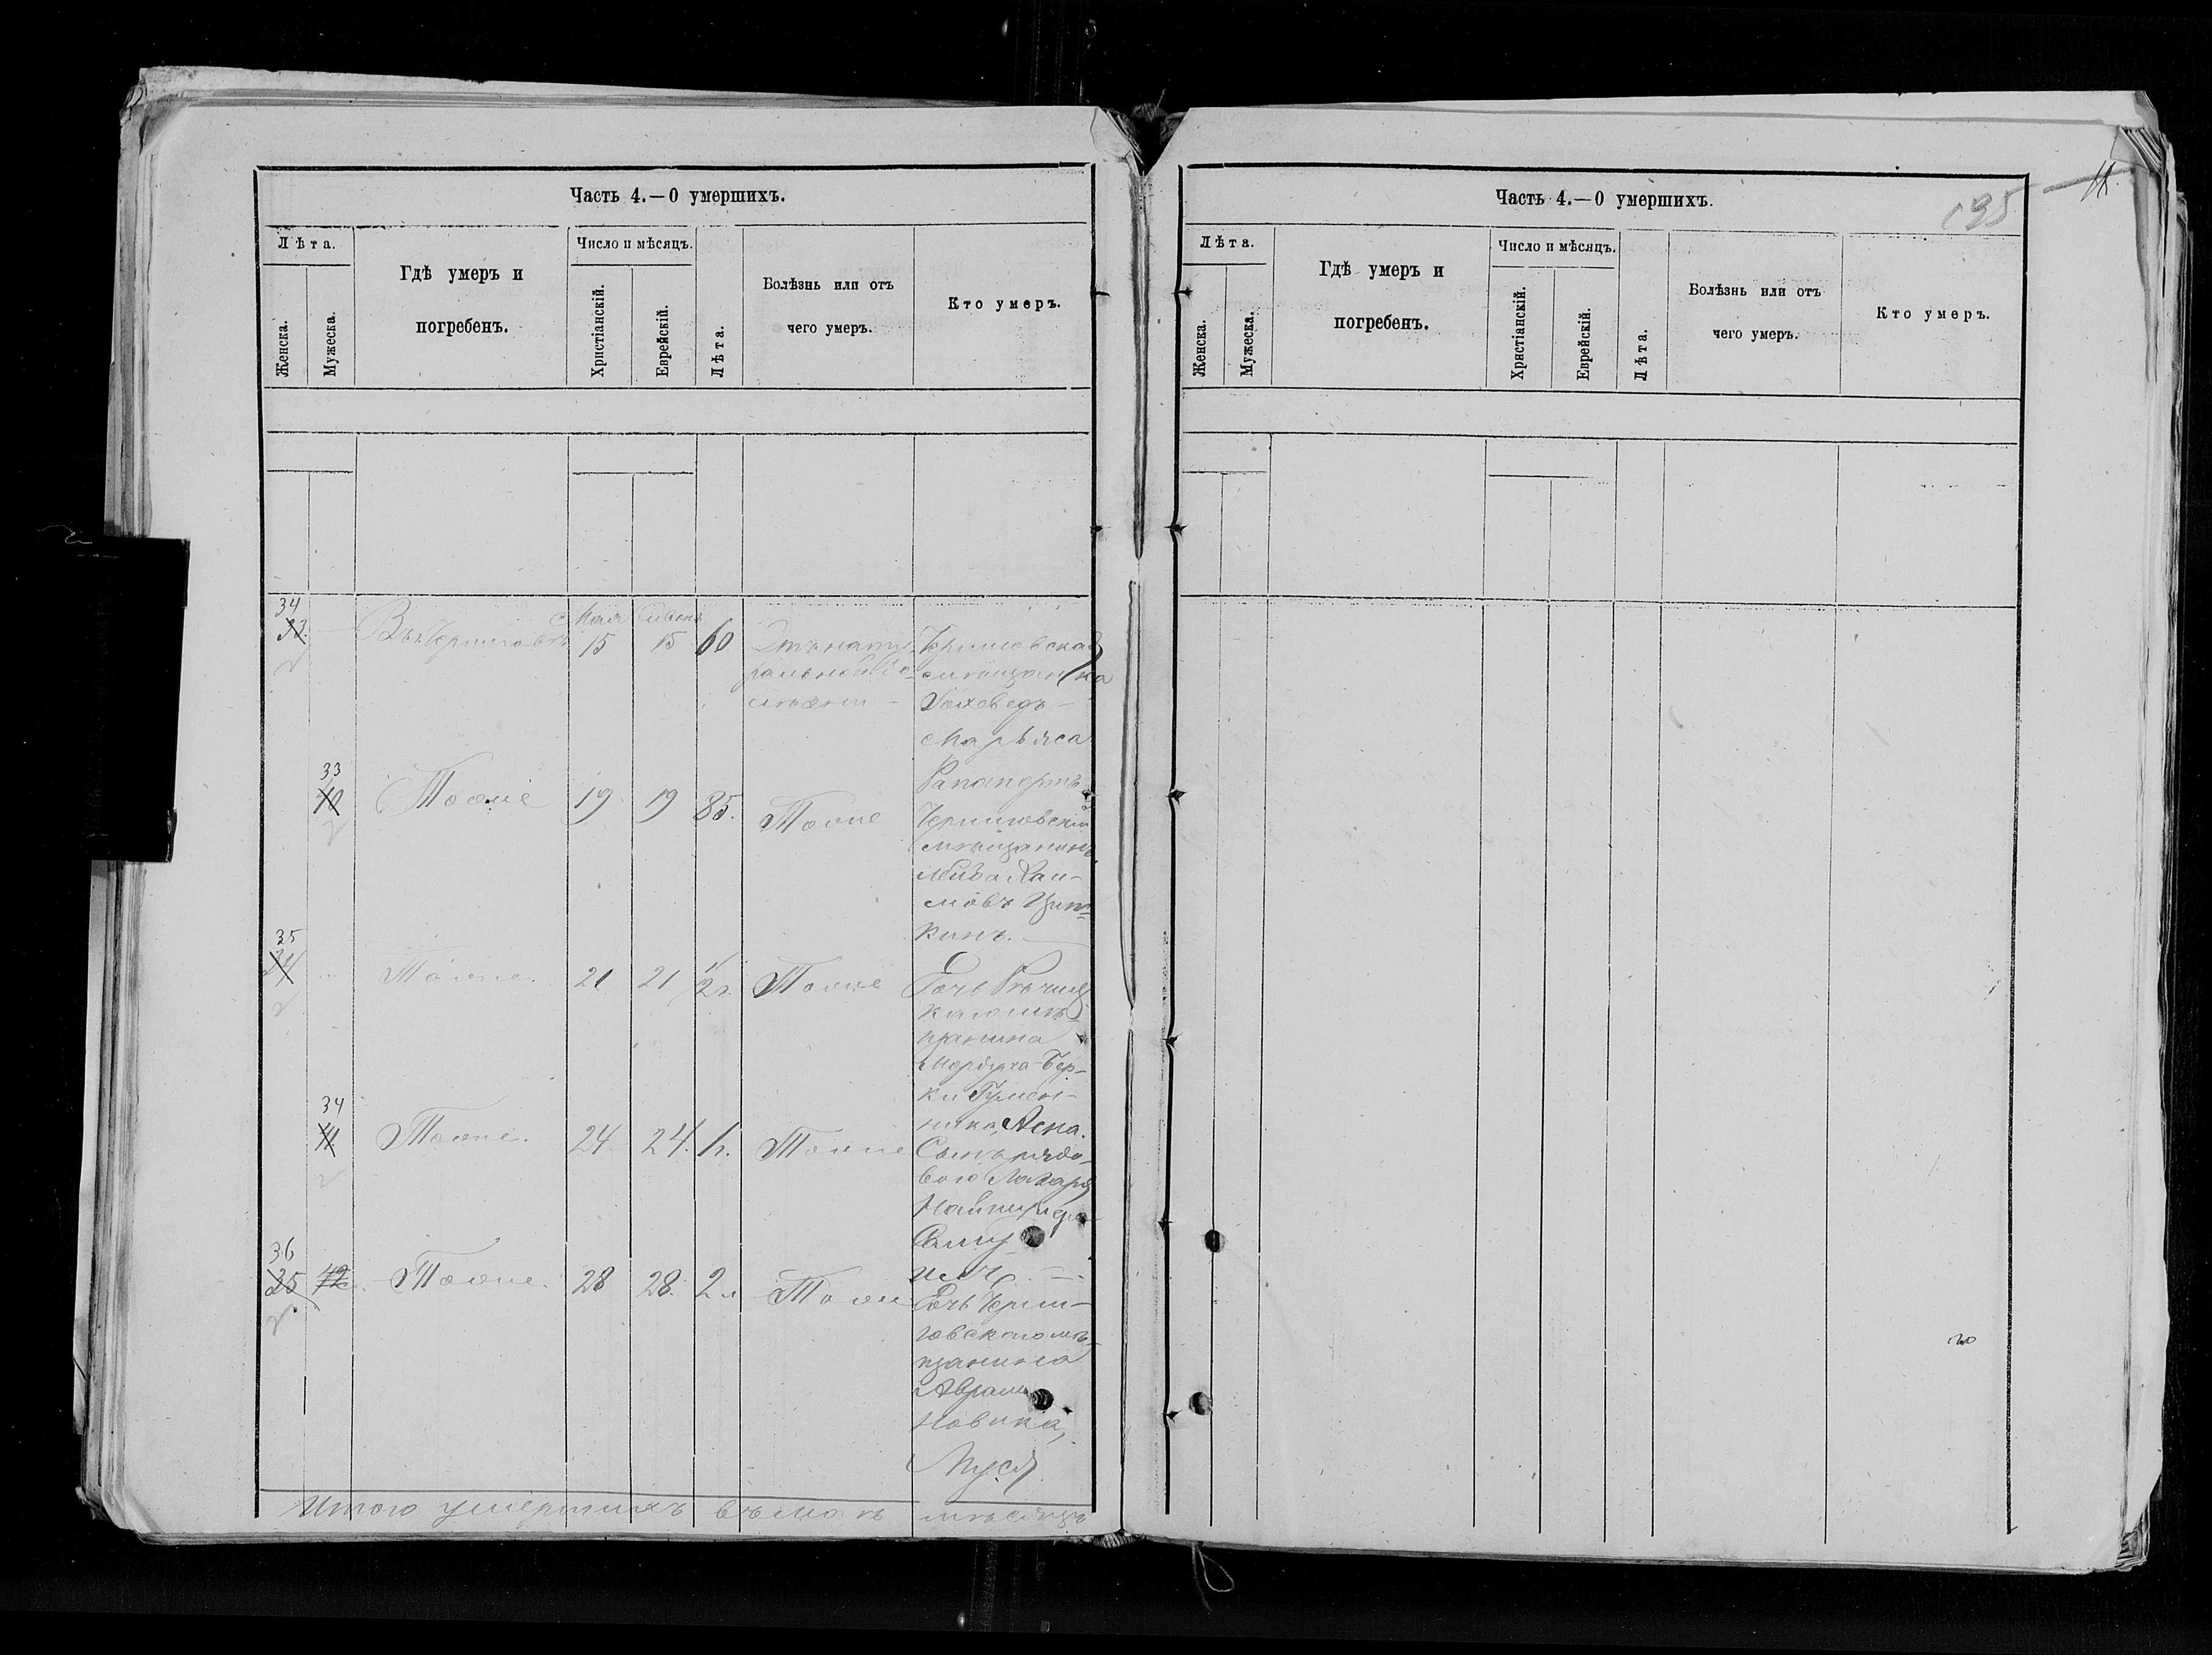 Часть 4.—О умершихъ.
Лѣта.
Женска.
Мужеска.
Гдѣ умеръ и
погребенъ.
Число и мѣсяцъ.
Христіанскій.
Еврейскій.
Лѣта.
Болѣзнь или отъ
чего умеръ.
Кто умеръ.
34
33.
Въ г. Черниговѣ
Мая Сивонъ
15 15 60
Отъ нату-
ральной бо-
лѣзни
Черниговская
мѣщанка
Іохеведъ
Марьяса
Рапапортъ
33
Тоже 19 19 85. Тоже
Черниговскій
мѣщанинъ
Лейба Хаи-
мовъ Цип-
кинъ.
35
34
Тоже. 21 21 1/2 г. Тоже
Дочь Рѣчиц-
каго мѣ-
щанина
Мордуха-Бер-
ки
Аспа.
34
Тоже. 24 24. 1 г. Тоже
Сынъ рядо-
ваго Лазаря
36
35 42.
Тоже. 28 28. 2 г. Тоже
Дочь Черни-
говскаго мѣ-
щанина
Абрама
Новика,
Муся
Итого умершихъ въ маѣ мѣсяцѣ
Часть 4.—О умершихъ.
195
11.
Лѣта.
Женска.
Мужеска.
Гдѣ умеръ и
погребенъ.
Число и мѣсяцъ.
Христіанскій.
Еврейскій.
Лѣта.
Болѣзнь или отъ
чего умеръ.
Кто умеръ.